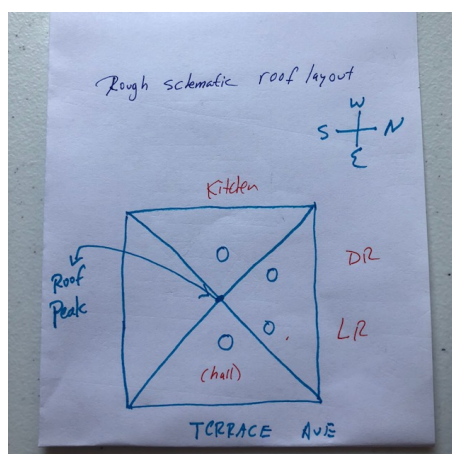 Rough schematic roof layout
W
S N
E
Kitchen
DR
Roof
Peak
LR
(hall)
TERRACE AVE